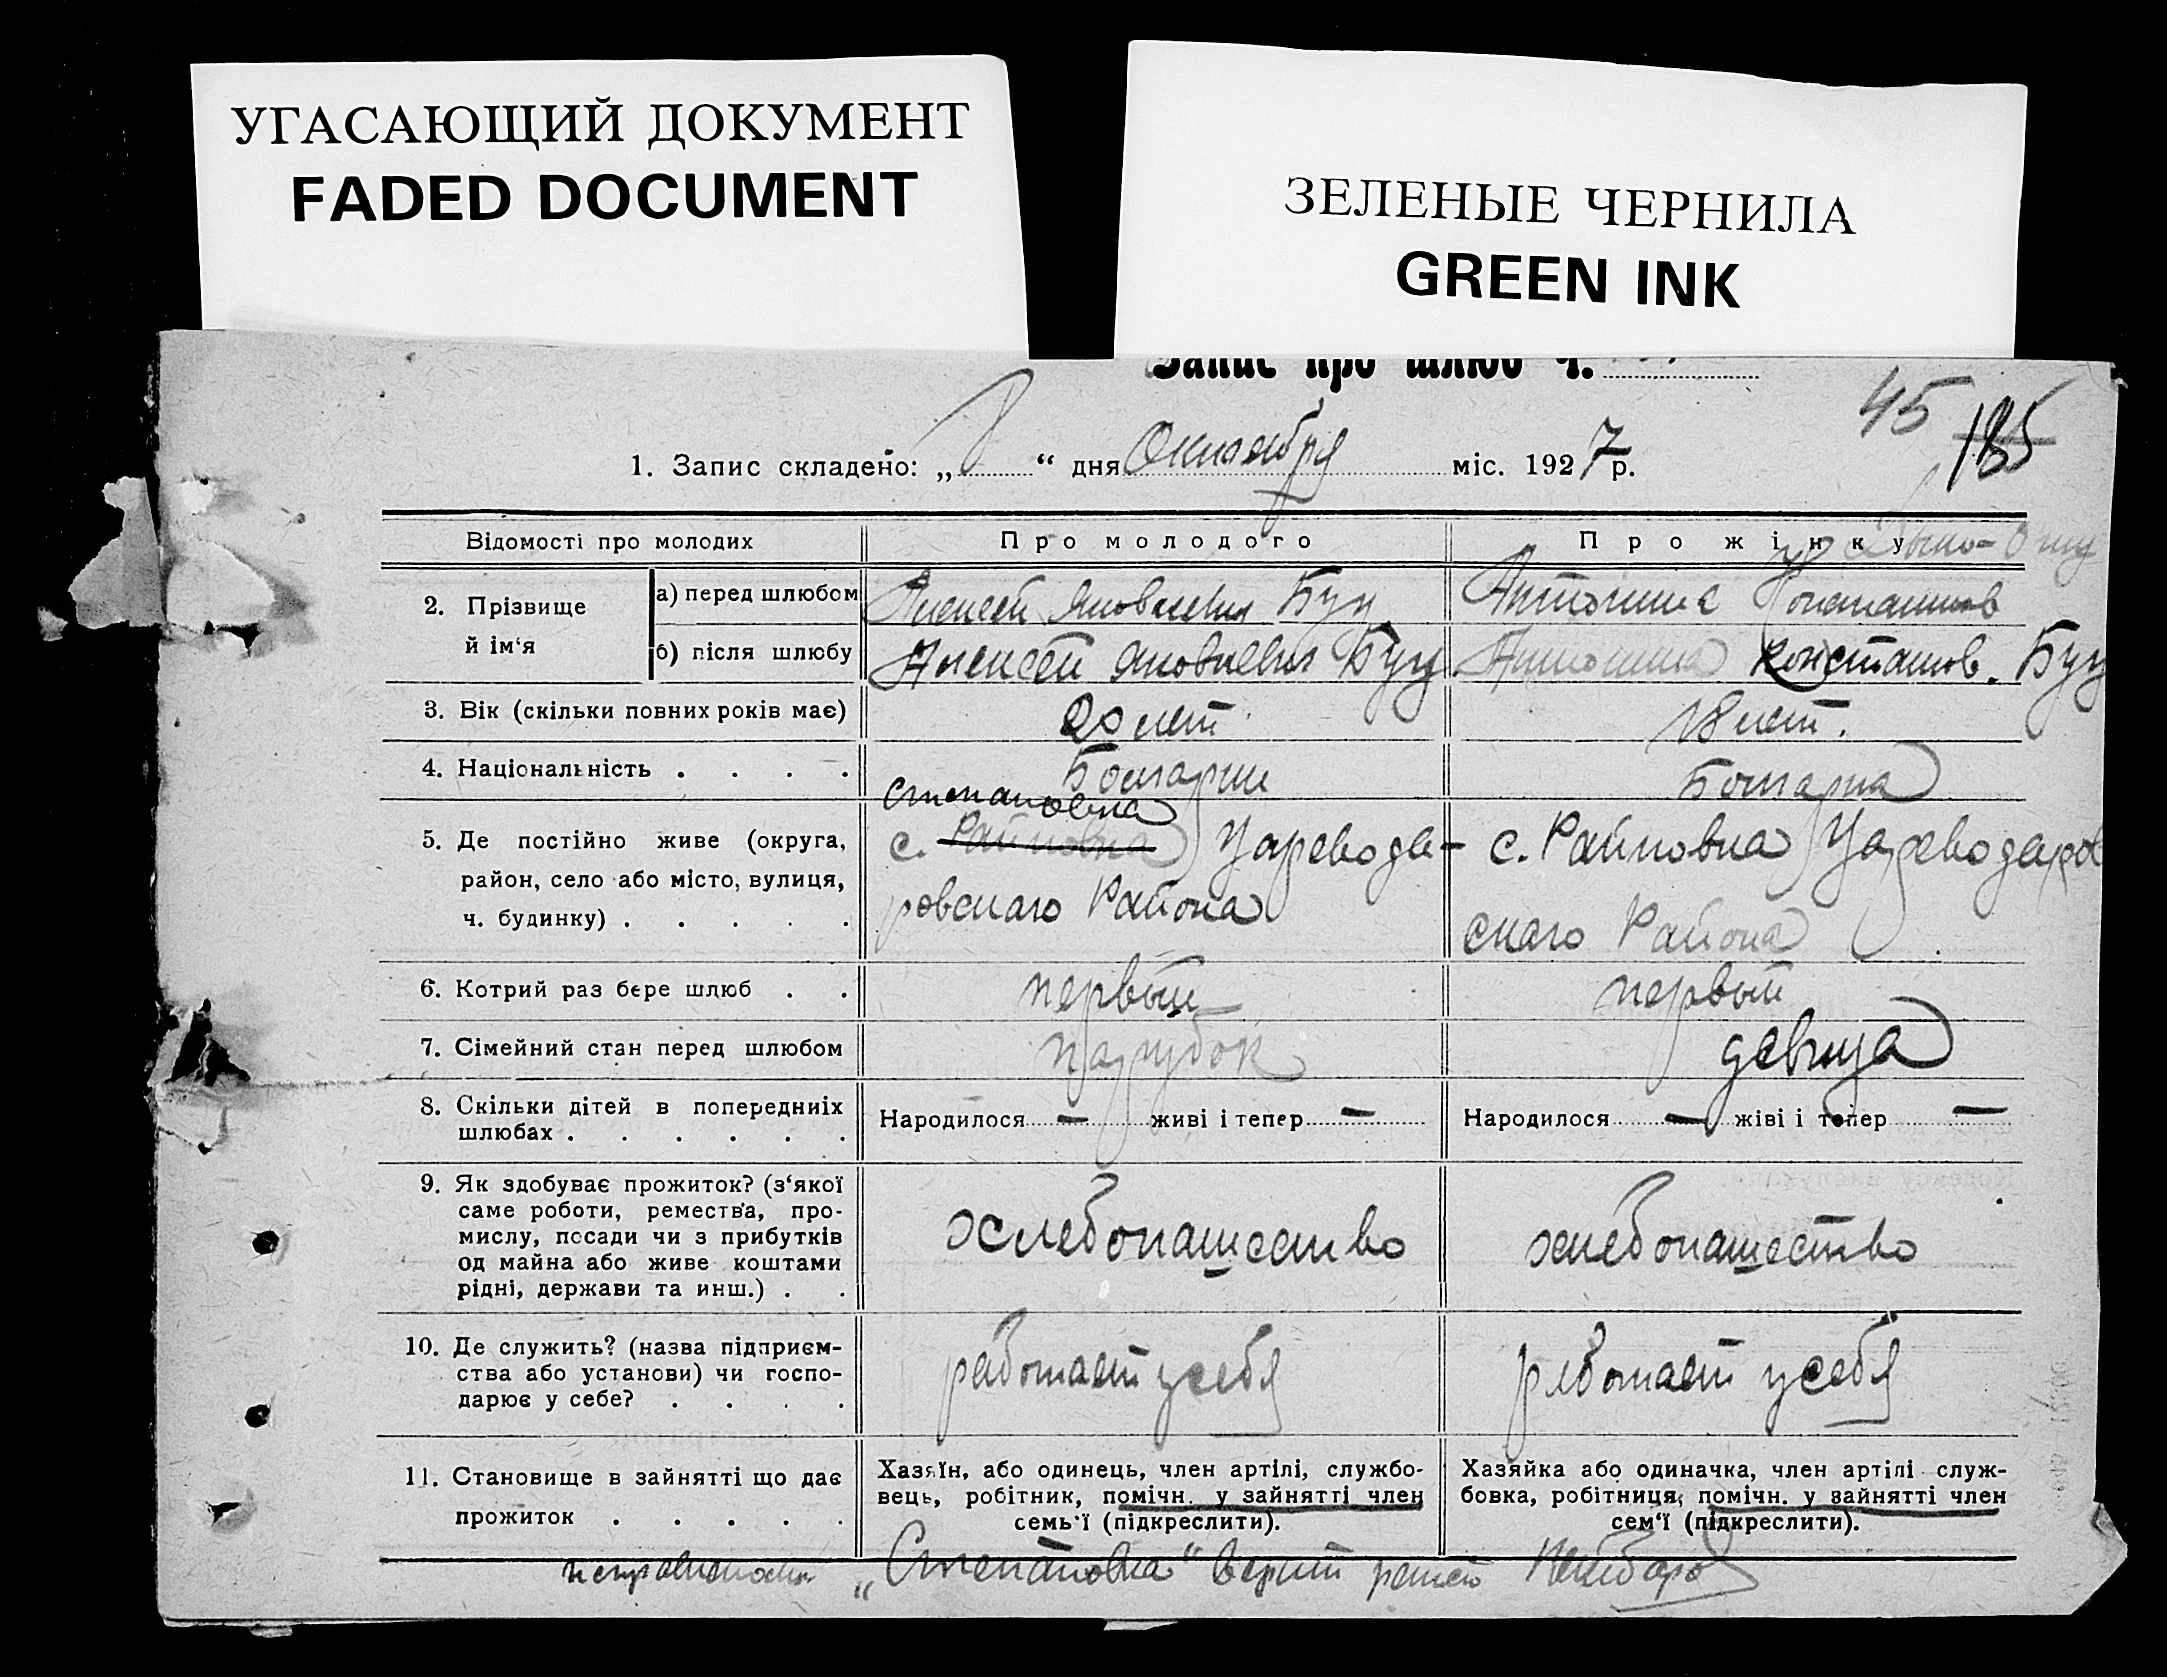 УГАСАЮЩИЙ ДОКУМЕНТ
FADED DOCUMENT
ЗЕЛЕНЫЕ ЧЕРНИЛА
GREEN INK
Запис про шлюб ч.
45 185
1. Запис складено: „ “ дня Октября міс. 1927 р.
Відомості про молодих
Про молодого
Про жінку
2. Прізвище й ім‘я
а) перед шлюбом
Алексей Яковлевич Буц
Антонина
б) після шлюбу
Алексей Яковлевич Буц
Антонина Констант. Буц
3. Вік (скільки повних років має)
20 лет
18 лет.
4. Національність . . . .
Болгарин
Болгарка
5. Де постійно живе (округа,
район, село або місто, вулиця,
ч. будинку) . . . . .
Степановка
с. Райновка Царевода-
ровскаго Района
с. Райновка Цареводаров
скаго Района
6. Котрий раз бере шлюб . .
первый
первый
7. Сімейний стан перед шлюбом
парубок
девица
8. Скільки дітей в попередниіх
шлюбах . . . . . .
Народилося — живі і тепер —
Народилося — жіві і тепер —
9. Як здобуває прожиток? (з‘якої
саме роботи, ремества, про-
мислу, посади чи з прибутків
од майна або живе коштами
рідні, держави та инш.) . .
хлебопашество
хлебопашество
10. Де служить? (назва підприєм-
ства або установи) чи госпо-
дарює у себе? . . . .
работает у себя
работает у себя
11. Становище в зайнятті що дає
прожиток . . . . .
Хазяїн, або одинець, член артілі, службо-
вець, робітник, помічн. у зайнятті член
семь‘ї (підкреслити).
Хазяйка або одиначка, член артілі служ-
бовка, робітниця, помічн. у зайнятті член
сем‘ї (підкреслити).
„Степановка“